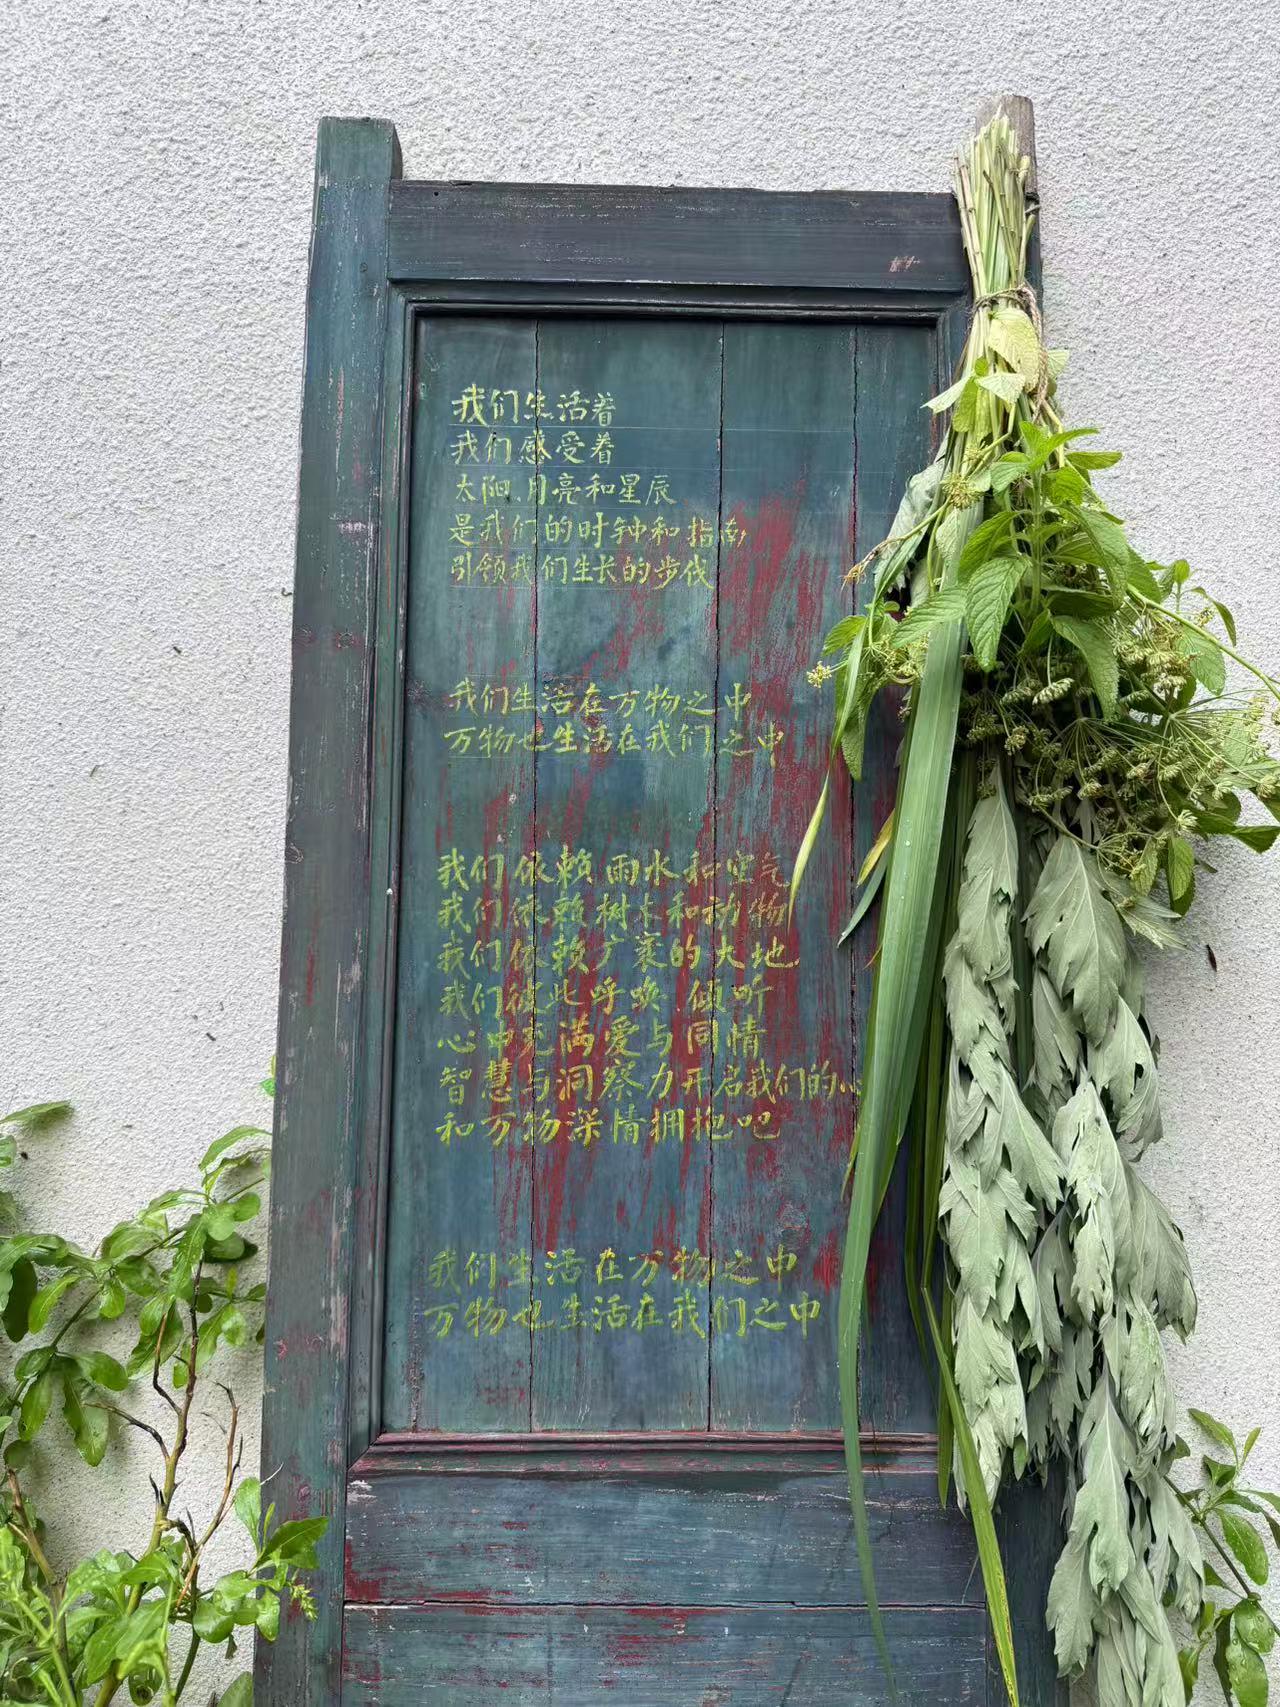 我们生活着
我们感受着
太阳、月亮和星辰
是我们的时钟和指南
引领我们生长的步伐
我们生活在万物之中
万物也生活在我们之中
我们依赖雨水和空气
我们依赖树木和动物
我们依赖广袤的大地
我们彼此呼唤、倾听
心中充满爱与同情
智慧与洞察力开启我们的心
和万物深情拥抱吧
我们生活在万物之中
万物也生活在我们之中